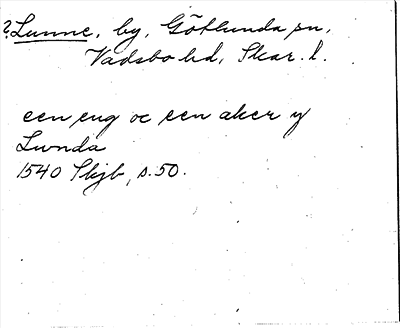 ? Lunne, by, Götlunda sn,
Vadsbo hd, Skar. l.
een eng oc een aker y
Lwnda
1540 Skjb, s. 50.